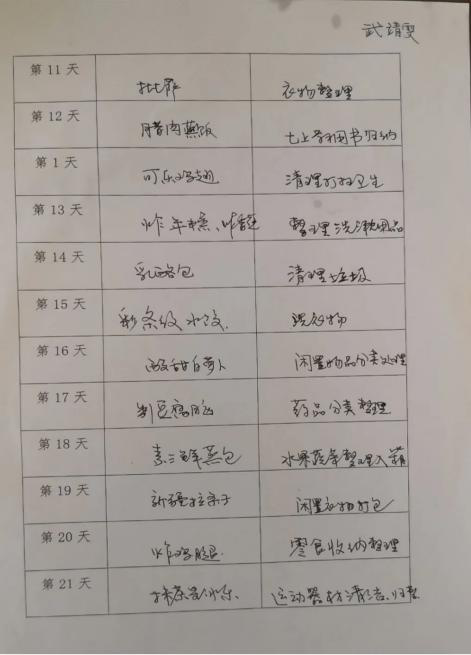 武靖雯
第 11 天 披萨 衣物整理
第 12 天 腊肉蒸饭 七上前图书归纳
第 1 天 可乐鸡翅 清理打扫卫生
第 13 天 炸年糕、炸香蕉 整理洗漱用品
第 14 天 乳酪包 清理垃圾
第 15 天 彩条纹水饺. 洗衣物
第 16 天 酸甜白萝卜 闲置物品分类处理
第 17 天 制豆腐脑 药品分类整理
第 18 天 素三鲜蒸包 水果蔬菜整理入箱
第 19 天 新疆拉条子 闲置衣物打包
第 20 天 炸鸡腿 零食收纳整理
第 21 天 抹茶 运动器材清洁、归整